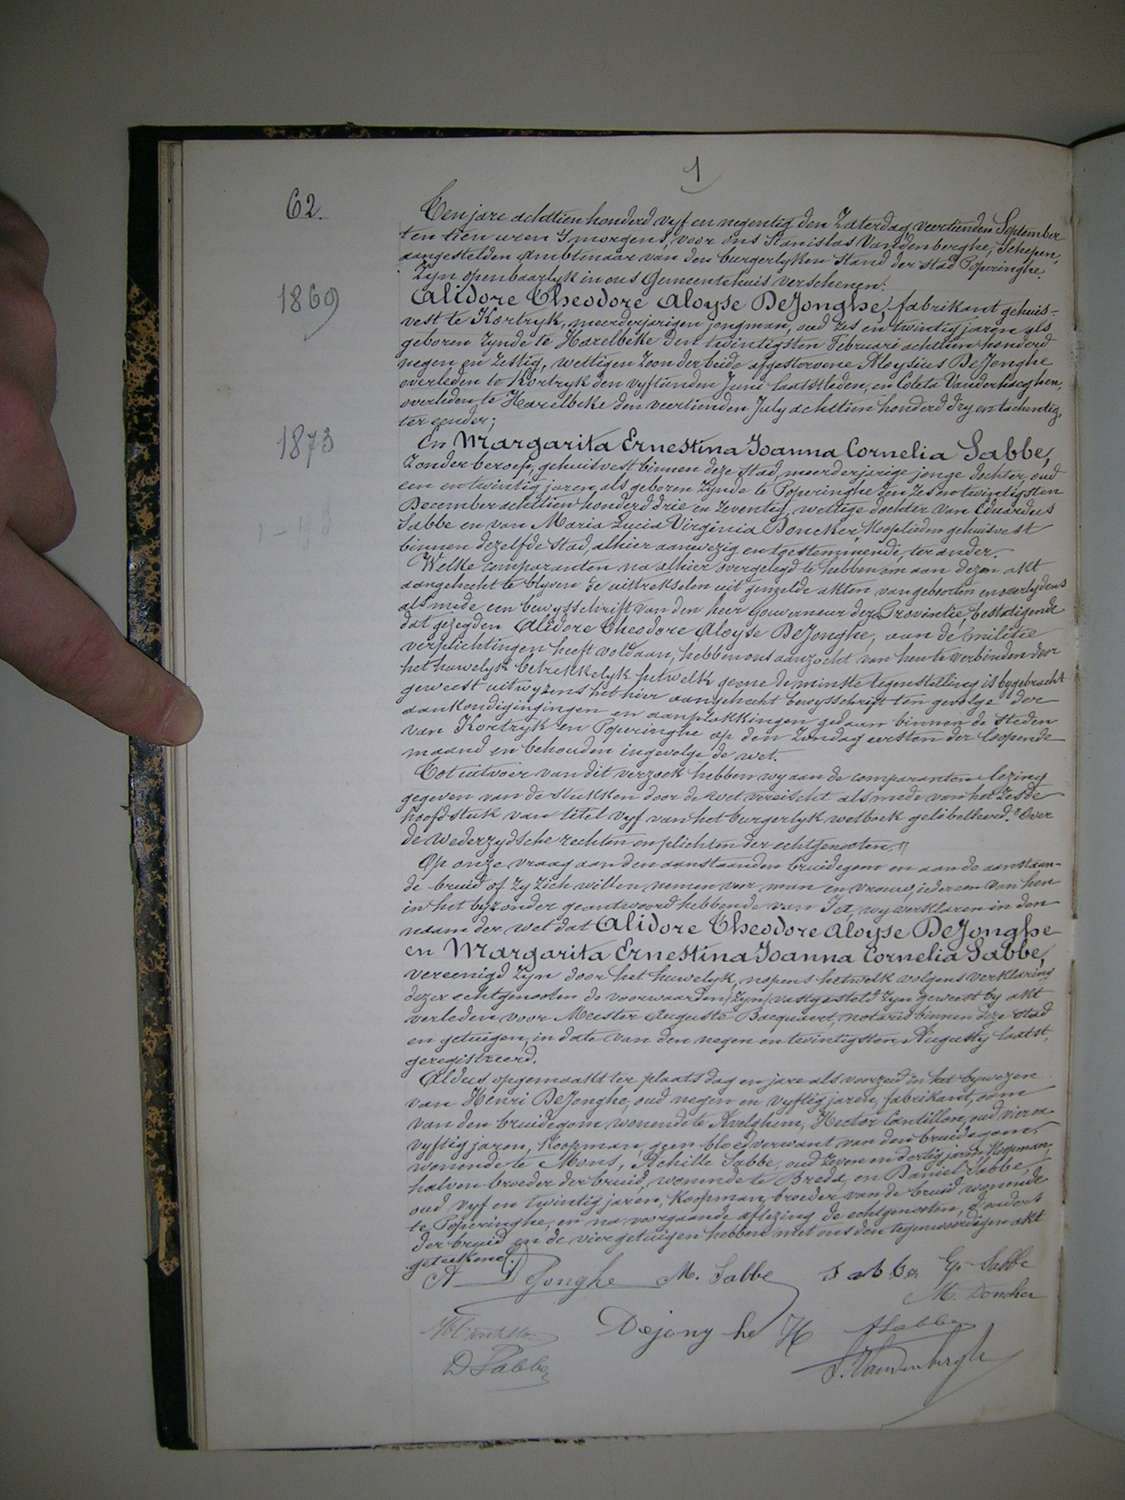 1
62.
Ten jare achttien honderd vyf en negentig den Zaterdag veertienden September
ten tien uren 's morgens, voor ons Stanislas Vandenberghe, Schepen,
aangestelden Ambtenaar van den burgerlyken Stand der stad Poperinghe
Zyn openbaarlyk in ons Gemeentehuis verschenen:
1869
Alidore Theodore Aloyse DeJonghe, fabrikant gehuis-
vest te Kortryk, meerderjarigen jongman, oud zes en twintig jaren als
geboren zynde te Harelbeke den twintigsten Februari achttien honderd
negen en zestig, wettigen zoon der beide afgestorvene Aloysius DeJonghe
overleden te Kortryk den vyftienden Juni laatstleden, en Coleta Vanderhaeghen,
overleden te Harelbeke den veertienden July achttien honderd dry en tachentig,
ter eender;
1873
En Margarita Ernestina Joanna Cornelia Sabbe,
Zonder beroep, gehuisvest binnen deze stad, meerderjarige jonge dochter, oud
een en twintig jaren, als geboren zynde te Poperinghe den zes en twintigsten
December achttien honderd drie en zeventig, wettige dochter van Eduardus
Sabbe en van Maria Lucia Virginia Doncker, kooplieden gehuisvest
binnen dezelfde stad, alhier aanwezig en toestemmende, ter ander.
Welke comparanten na alhier overgelegd te hebben om aan dezen akt
aangehecht te blyven de uittrekselen uit gemelde akten van geboorten en overlydens
als mede een bewysschrift van den heer Gouverneur dezer Provincie, bestatigende
dat gezegden Alidore Theodore Aloyse DeJonghe, aan de militie
verplichtingen heeft voldaan, hebben ons aanzocht van hen te verbinden door
het huwelyk betrekkelyk hetwelk geene de minste tegenstelling is bygebracht
geweest uitwyzens het hier aangehecht bewysschrift ten gevolge der
aankondigingen en aanplakkingen gedaan binnen de steden
van Kortryk en Poperinghe op den Zondag eersten der loopende
maand en behouden ingevolge de wet.
Tot uitvoer van dit verzoek hebben wy aan de comparanten lezing
gegeven van de stukken door de wet vereischt als mede van het zesde
hoofdstuk van titel vyf van het burgerlyk wetboek gelibelleerd: "Over
de wederzydsche rechten en plichten der echtgenooten."
Op onze vraag aan den aanstaanden bruidegom en aan de aanstaan-
de bruid of zy zich willen nemen voor man en vrouw, ieder een van hen
in het byzonder geantwoord hebbende van Ja, wy verklaren in den
naam der wet dat Alidore Theodore Aloyse DeJonghe
en Margarita Ernestina Joanna Cornelia Sabbe,
vereenigd zyn door het huwelyk, nopens hetwelk volgens verklaring
dezer echtgenooten de voorwaarden (zyn) vastgesteld zyn geweest by akt
verleden voor Meester Auguste Bacquaert, notaris binnen deze stad
en getuigen, in date van den negen en twintigsten Augusty laatst,
geregistreerd.
Aldus opgemaakt ter plaats dag en jare als voorzeid in het bywezen
van Henri DeJonghe, oud negen en vyftig jaren, fabrikant, oom
van den bruidegom wonende te Avelghem, Hector Cantillon, oud vier en
vyftig jaren, Koopman, geen bloedverwant van den bruidegom,
wonende te Mons, Achille Sabbe, oud zeven en dertig jaren, Koopman,
halven broeder der bruid, wonende te Breda, en Daniel Sabbe,
oud vyf en twintig jaren, Koopman, broeder van de bruid wonende
te Poperinghe, en na voorgaande aflezing de echtgenooten, d'ouders
der bruid en de vier getuigen hebben met ons den tegenwoordigen akt
geteekend.
A DeJonghe M. Sabbe Sabbe G. Sabbe
M. Doncker
Dejonghe H ASabbe
D Sabbe S. Vandenberghe